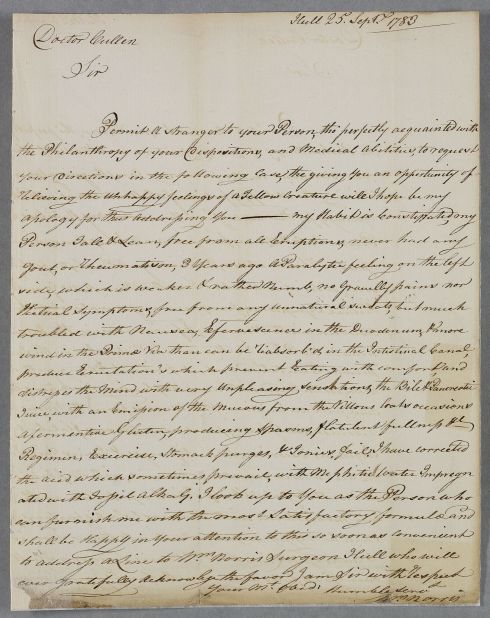 Hull 25. Sept.r 1783
Doctor Cullen
Sir
Permit A Stranger to your Person, tho perfectly acquainted with
the Philanthropy of your Disposition, and Medical Abilities, to request
Your Directions in the following Case, the giving You an opportunity of
relieving the Unhappy feelings of a Fellow Creature will I hope be my
Apology for thus Addressing You — my Habit is Constipated, my
Person Tall & Lean, free from all Eruptions, never had any
Gout, or Rheumatism, 3 Years ago A Paralytic feeling on the left
side, which is weaker & rather Numb, no Gravelly pains nor
free from any unnatural sweats, but much
troubled with Nausea, Effervescence in the Duodenum, & more
wind in the Primæ Viæ than can be absorb'd in the Intestinal Canal,
produce Eructation's which prevent Eating with comfort, and
distress the Mind with very Unpleasing Sensations, the Bile & Pancreatic
Juice with an Emission of the Mucous from the Villous Coats occasions
a fermentive Gluten, producing Spasms, flatulent fullness &c
Regimen, Exercise, Stomach purges, & Tonics, fail, I have corrected
the Acid which sometimes prevail, with Mephitic Water Impregn
ated with Alkali. I look up to You as the Person who
can furnish me with the most Satisfactory formulæ and
shall be Happy in your Attention to this so soon as convenient
to address a Line to Wm Norris Surgeon Hull who will
ever gratefully Acknowledge the favor I am Sir with Respect
Your Mt. Obedt. humble Servt
Wm Norris